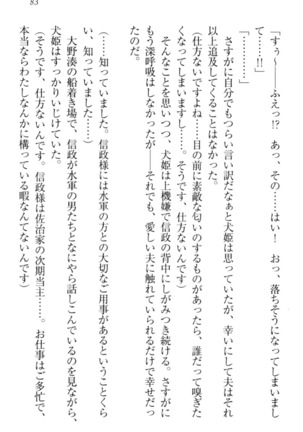 83
「すぅ〜――ふえっ!? あっ、その……はい! おっ、落ちそうになってしまいまし
て……!!」
「………」
さすがに自分でもつらい言い訳だなぁと犬姫は思っていたが、幸いにして夫はそれ
以上追及してくることはなかった。
(仕方ないですよね……目の前に素敵な匂いのするものがあったら、誰だって嗅ぎた
くなってしまいますし……。そうです、仕方ないんです)
そんなことを思いつつ、犬姫は上機嫌で信政の背中にしがみつき続ける。さすがに
もう深呼吸はしなかったが――それでも、愛しい夫に触れていられるだけで幸せだっ
たのだ。
(……知っていました。信政様には水軍の方との大切なご用事があるということくら
い、知っていました……)
大野湊の船着き場で、信政が水軍の男たちとなにやら話しこんでいるのを見ながら、
犬姫はすっかりいじけていた。
(そうです、仕方ないんです。信政様は佐治家の次期当主……。お仕事はご多忙で、
本当ならわたしなんかに構っている暇なんてないんです)